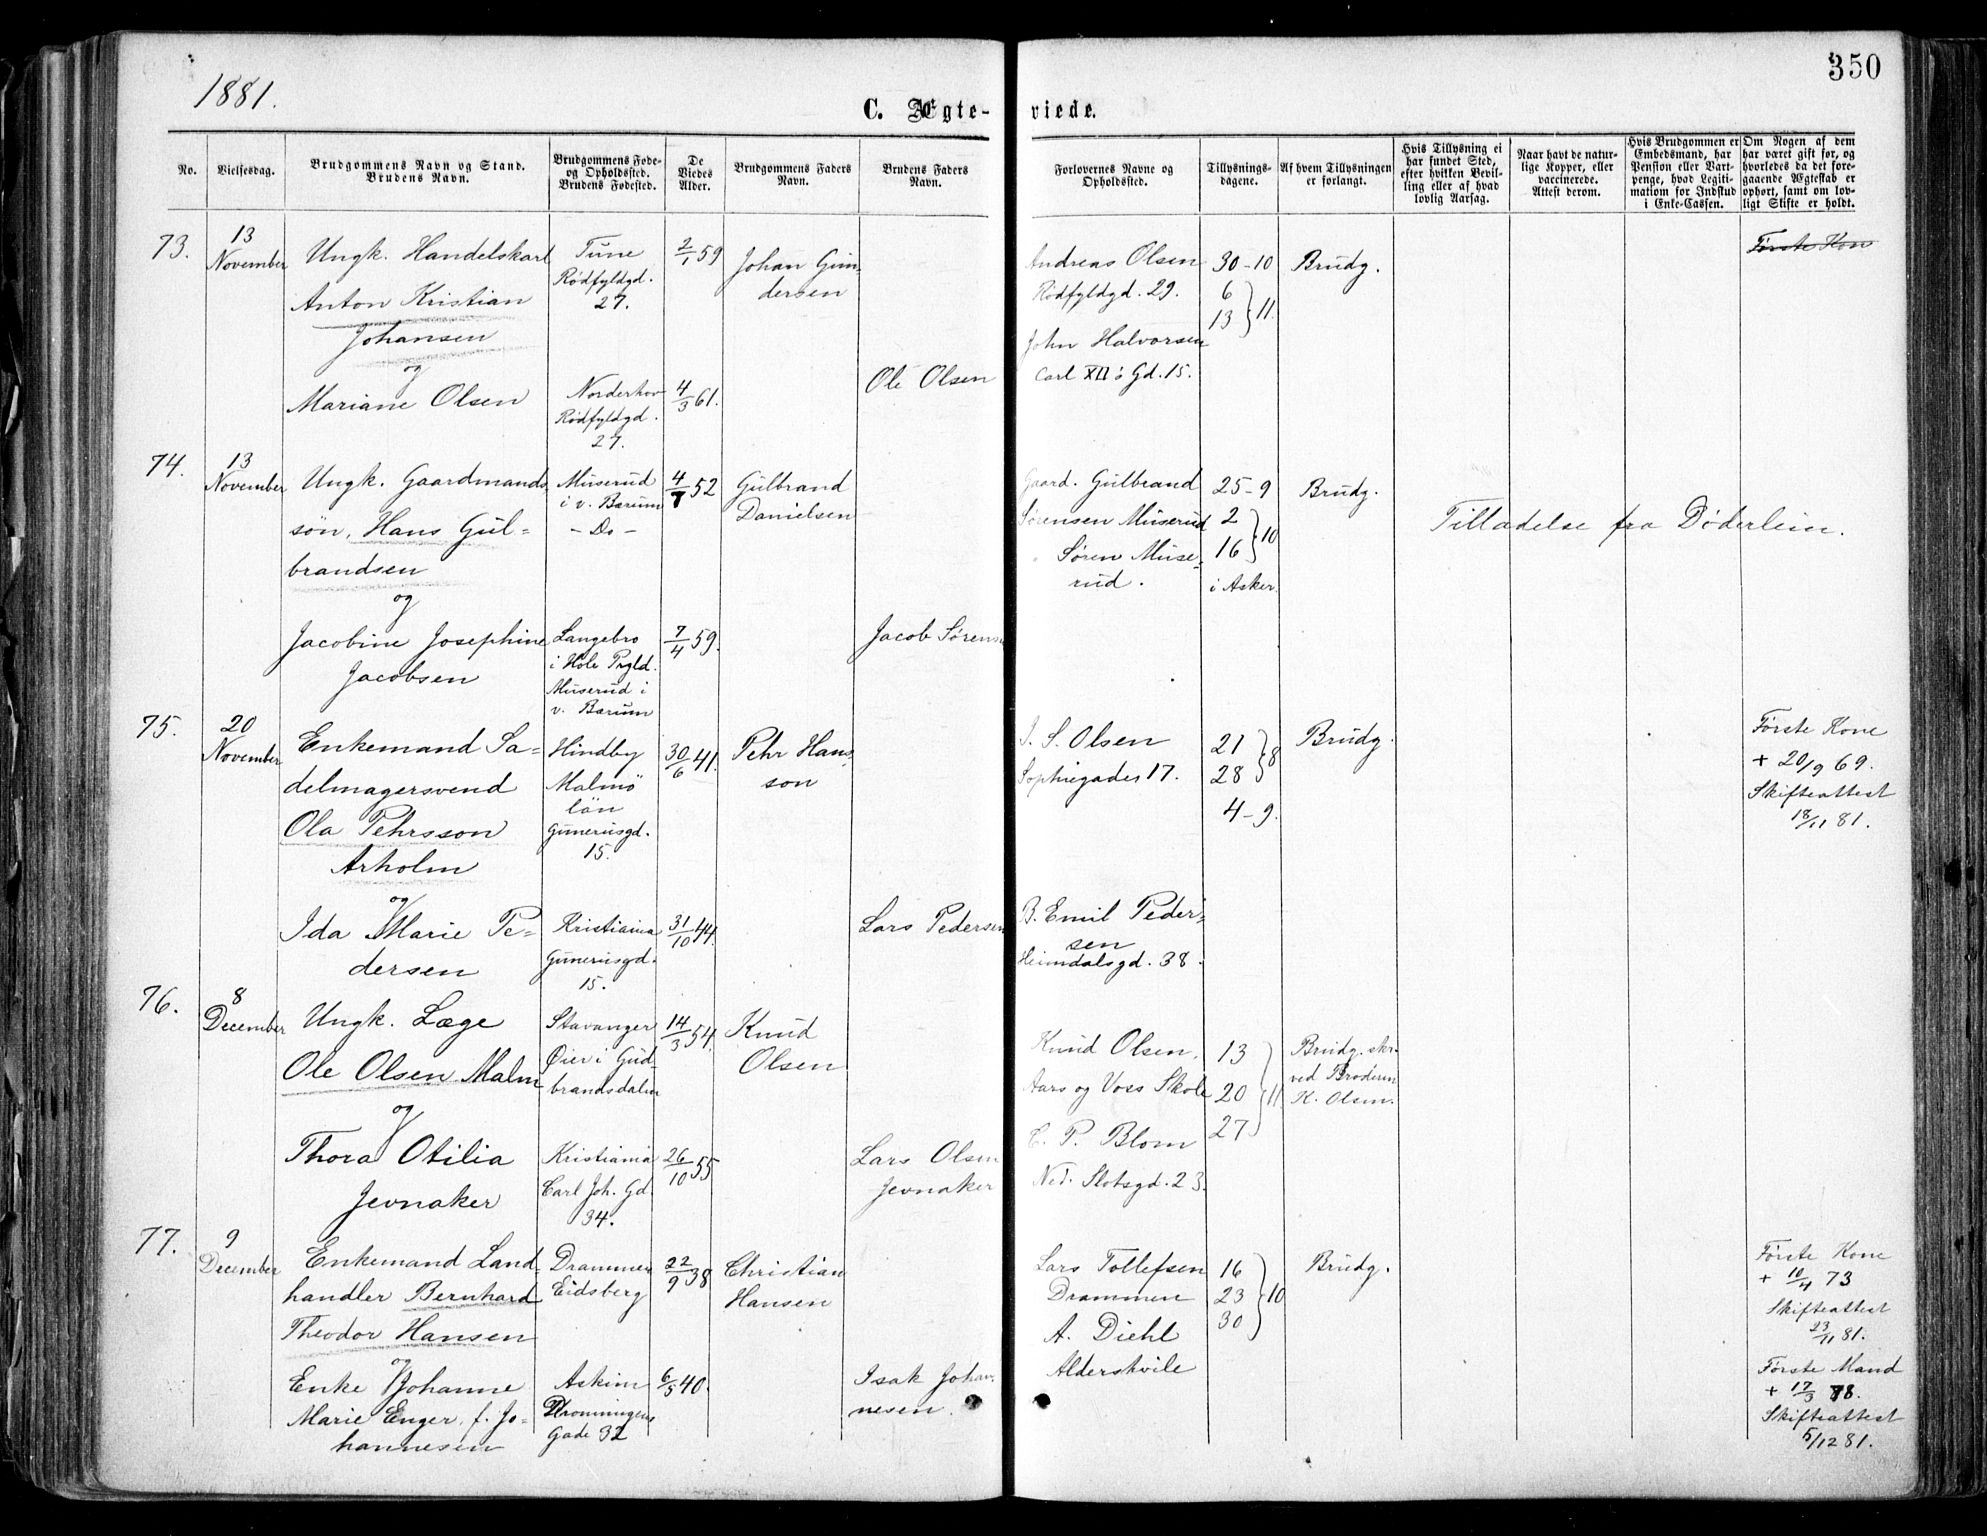 1881.
350
C. Ægte-
viede.
No.
Vielsesdag.
Brudgommens Navn og Stand.
Brudens Navn.
Brudgommens Føde-
og Opholdssted.
Brudens Fødested.
De
Viedes
Alder.
Brudgommens Faders
Navn.
Brudens Faders
Navn.
Forlovernes Navne og
Opholdssted.
Tillysnings-
dagene.
Af hvem Tillysningen
er forlangt.
Hvis Tillysning ei
har fundet Sted,
efter hvilken Bevil-
ling eller af hvad
lovlig Aarsag.
Naar havt de natur-
lige Kopper, eller
vaccinerede.
Attest derom.
Hvis Brudgommen er
Embedsmand, har
Pension eller Vart-
penge, hvad Legiti-
mation for Indskud
i Enke-Cassen.
Om Nogen af dem
har været gift før, og
hvorledes da det fore-
gaaende Ægteskab er
ophørt, samt om lov-
ligt Skifte er holdt.
73.
13
November
Ungk. Handelskarl
Anton Kristian
Johansen
og
Mariane Olsen
Tune
Rødfyldgd.
27.
Norderhov
Rødfyldgd.
27.
2/1 59
4/3 61.
Johan Gun-
dersen
Ole Olsen
Andreas Olsen
Rødfyldgd. 29.
John Halvorsen
Carl XII's Gd. 15.
30-10
6
13 } 11.
Brudg.
Første Kon
74.
13
November
Ungk. Gaardmands
søn, Hans Gul-
brandsen
og
Jacobine Josephine
Jacobsen
Muserud
i v. Bærum
- Do -
Langebro
i Hole Prgld.
Muserud i
v. Bærum
4/7 52
7/4 59.
Gulbrand
Danielsen
Jacob Sørens
Gaard. Gulbrand
Sørensen Muserud
Søren Muse-
rud.
25-9
2
16 } 10
i Asker.
Brudg.
Tilladelse fra Døderlein.
75.
20
November
Enkemand Sa-
delmagersvend
Ola Pehrsson
Arholm
og
Ida Marie Pe-
dersen
Hindby
Malmö
län
Gunerusgd.
15.
Kristiania
Gunerusgd.
15.
30/6 41.
31/10 44.
Pehr Hans-
son
Lars Pedersen
J. S. Olsen
Sophiegades 17.
B. Emil Peder-
sen
Heimdalsgd. 38.
21
28 } 8
4-9.
Brudg.
Første Kone
+ 20/9 69.
Skifteattest
18/11 81.
76.
8
December
Ungk. Læge
Ole Olsen Malm
og
Thora Otilia
Jevnaker
Stavanger
Øier i Gud-
brandsdalen
Kristiania
Carl Joh. Gd.
34.
14/3 54.
26/10 55
Knud
Olsen
Lars Olsen
Jevnaker
Knud Olsen.
Aars og Voss Skole
C. P. Blom
Ned. Slotsgd. 23.
13
20 } 11
27
Brudg. skr.
ved Broderen
K. Olsen.
77.
9
December
Enkemand Land-
handler Bernhard
Theodor Hansen
og
Enke Johanne
Marie Enger, f. Jo-
hannesen
Drammen
Eidsberg
Askim
Dronningens
Gade 32
22/9 38
6/5 40.
Christian
Hansen
Isak Johan-
nesen.
Lars Tollefsen
Drammen
A. Diehl
Aldershvile
16
23 } 10
30
Brudg.
Første Kone
+ 10/4 73
Skifteattest
23/11 81.
Første Mand
+ 17/3 78.
Skifteattest
5/12 81.